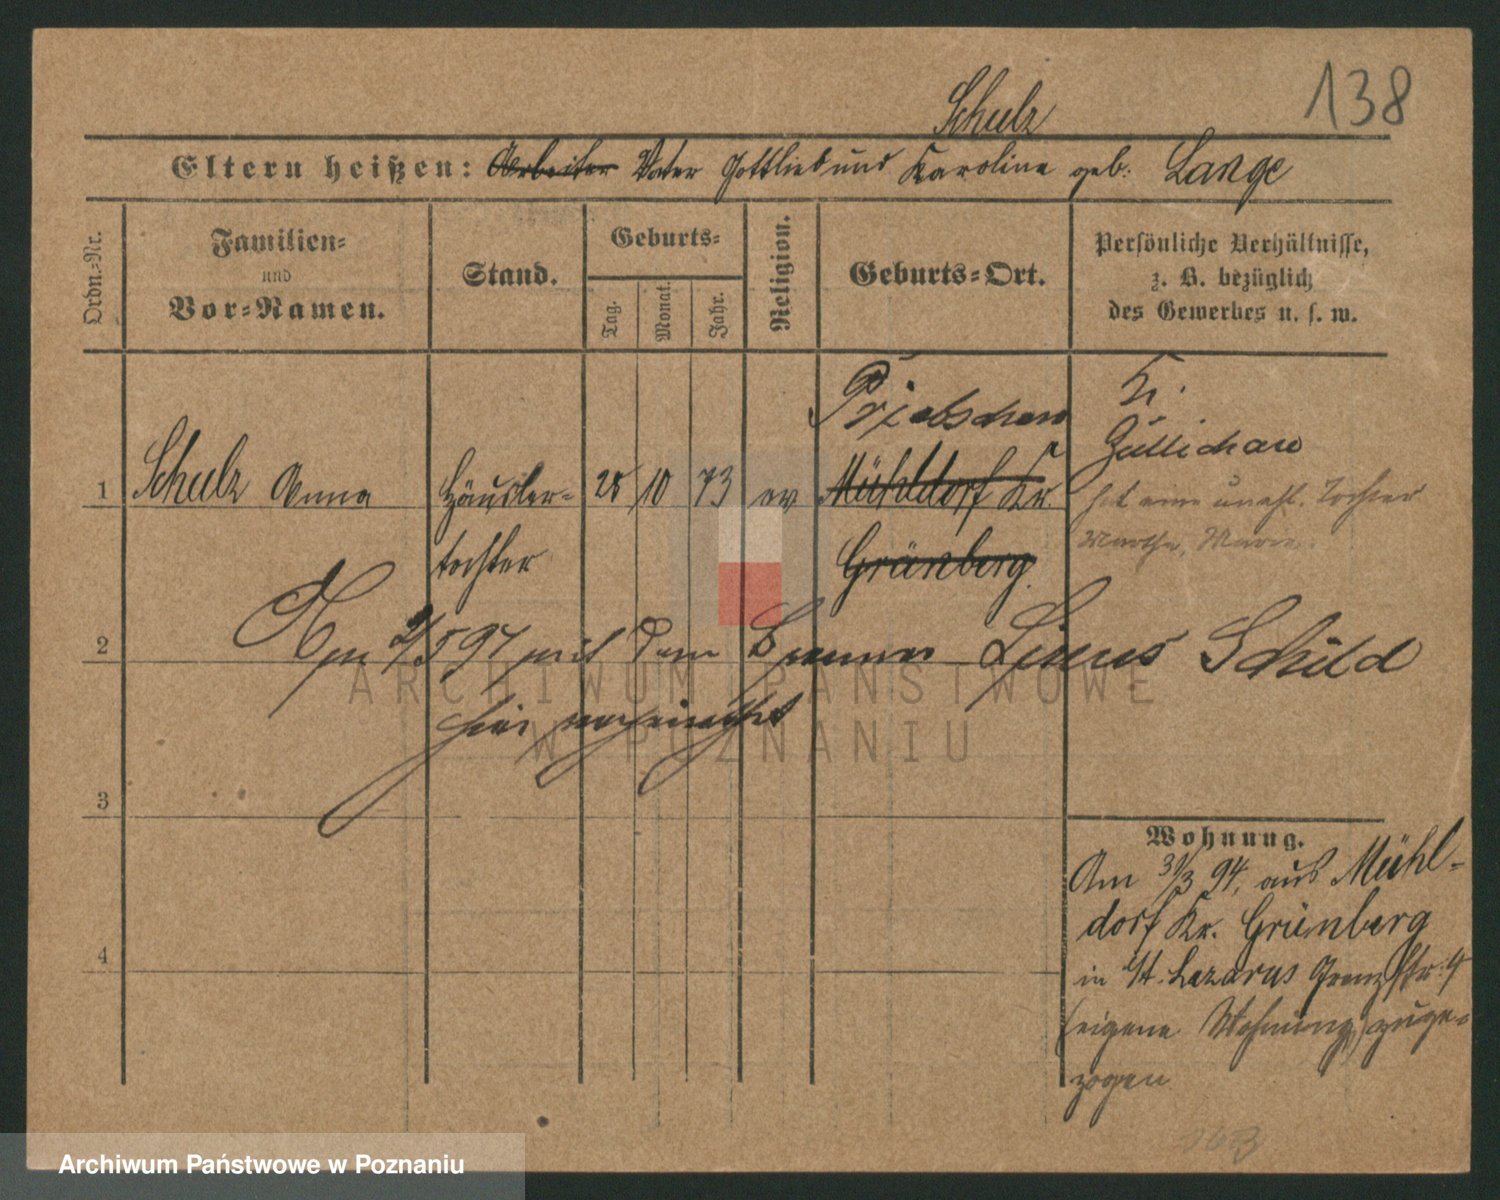 138
Schulz
Eltern heißen: Arbeiter Vater Gottlieb und Karoline geb. Lange
Ordn.=Nr.
Familien=
und
Vor=Namen.
Stand.
Geburts=
Tag.
Monat.
Jahr.
Religion.
Geburts=Ort.
Persönliche Verhältnisse,
z. B. bezüglich
des Gewerbes u. s. w.
1
Schulz Anna
Häusler-
tochter
10
73
ev
Mühldorf Kr.
Grünberg
Kr.
Züllichau
hat eine unehl. Tochter
Martha, Marie.
2
Am 2/5 97 mit dem Linus Schild
hier verheirathet
3
4
Wohnung.
Am 31/3 94, aus Mühl-
dorf Kr. Grünberg
in St. Lazarus Grenzstr. 9
(eigene Wohnung) zuge-
zogen
ARCHIWUM PAŃSTWOWE
W POZNANIU
Archiwum Państwowe w Poznaniu